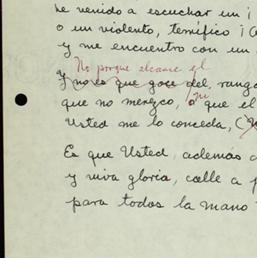 he venido a escuchar un ¡
o un violento, temífico ¡
y me encuentro con un
No porque alcance el
y no es que goce del rango
que no merezco, ni que el
Usted me lo conceda, (
Es que Usted, además
y viva gloria, calle a
para todos la mano